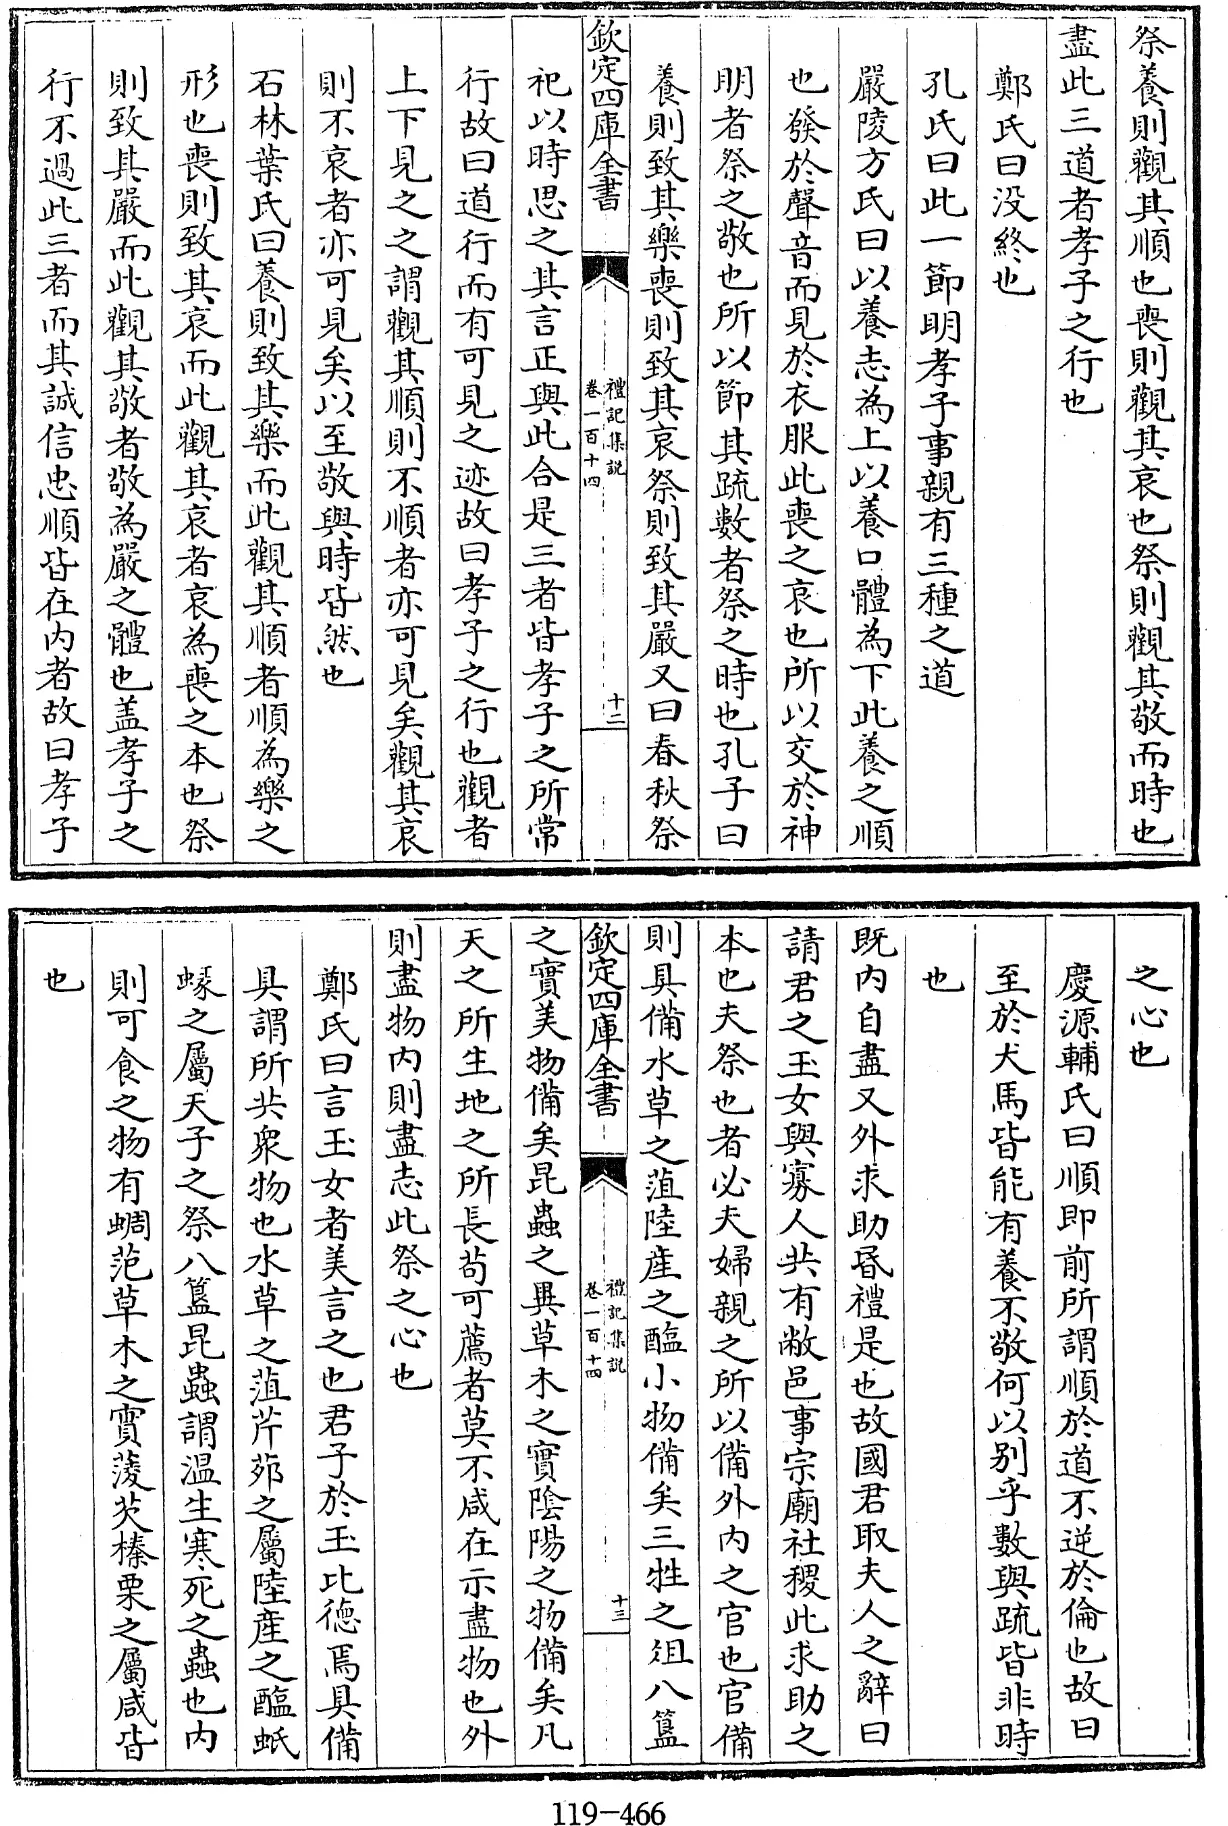 祭養則觀其順也喪則觀其哀也祭則觀其敬而時也
盡此三道者孝子之行也
鄭氏曰沒終也
孔氏曰此一節明孝子事親有三種之道
嚴陵方氏曰以養志為上以養口體為下此養之順
也發於聲音而見於衣服此喪之哀也所以交於神
明者祭之敬也所以節其疏數者祭之時也孔子曰
養則致其樂喪則致其哀祭則致其嚴又曰春秋祭
欽定四庫全書
禮記集說
卷一百十四
十二
祀以時思之其言正與此合是三者皆孝子之所常
行故曰道行而有可見之迹故曰孝子之行也觀者
上下見之之謂觀其順則不順者亦可見矣觀其哀
則不哀者亦可見矣以至敬與時皆然也
石林葉氏曰養則致其樂而此觀其順者順為樂之
形也喪則致其哀而此觀其哀者哀為喪之本也祭
則致其嚴而此觀其敬者敬為嚴之體也盖孝子之
行不過此三者而其誠信忠順皆在内者故曰孝子
之心也
慶源輔氏曰順即前所謂順於道不逆於倫也故曰
至於犬馬皆能有養不敬何以别乎數與疏皆非時
也
既内自盡又外求助昏禮是也故國君取夫人之辭曰
請君之玉女與寡人共有敝邑事宗廟社稷此求助之
本也夫祭也者必夫婦親之所以備外内之官也官備
則具備水草之菹陸產之醢小物備矣三牲之俎八簋
欽定四庫全書
禮記集說
卷一百十四
十三
之實美物備矣昆蟲之異草木之實陰陽之物備矣凡
天之所生地之所長苟可薦者莫不咸在示盡物也外
則盡物内則盡志此祭之心也
鄭氏曰言玉女者美言之也君子於玉比德焉具備
具謂所共衆物也水草之菹芹茆之屬陸產之醢蚳
蝝之屬天子之祭八簋昆蟲謂温生寒死之蟲也内
則可食之物有蜩范草木之實蔆芡榛栗之屬咸皆
也
119-466